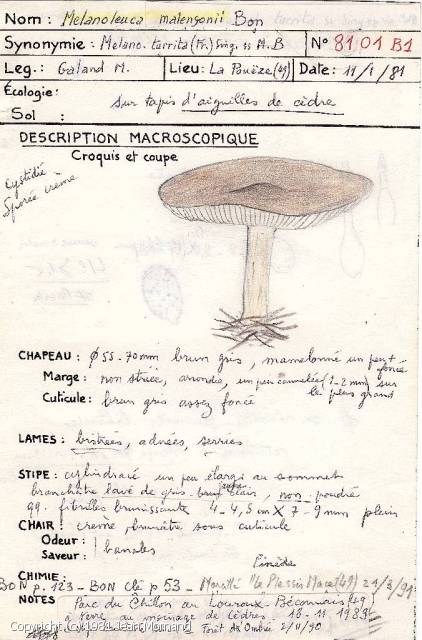 Nom : Melanoleuca malengonii Bon
Synonymie : Melano. tarrita (Fr.) Sing. ss M.B N° 81 01 B1
Leg. : Galand M. Lieu : La Pouëze (49) Date : 11/1/81
Écologie :
sur tapis d'aiguilles de cèdre
Sol :
DESCRIPTION MACROSCOPIQUE
Croquis et coupe
Cystidié -
Sporée creme
CHAPEAU : ø 55 - 70 mm brun gris, mamelonné un peu + foncé
Marge : non striée, arrondie, un peu cannelée (1-2 mm) sur le plus grand
Cuticule : brun gris assez foncé
LAMES : bistrées, adnées, serrées
STIPE : cylindracé un peu élargi au sommet
blanchâtre lavé de gris-brun clair, non poudré
qq. fibrilles brunissantes 4 - 4,5 cm X 7 - 9 mm plein
CHAIR : creme, brunâtre sous cuticule
Odeur :
Saveur : banales
Pinède
CHIMIE :
BON p. 123 - BON clé p 53 - "Le Plessis Macé (49) 21/3/91
NOTES Parc du Chillon au Louroux-Béconnais (49)
cèdres. 18-11 1989
Copyright (c) 1981
2/11/90